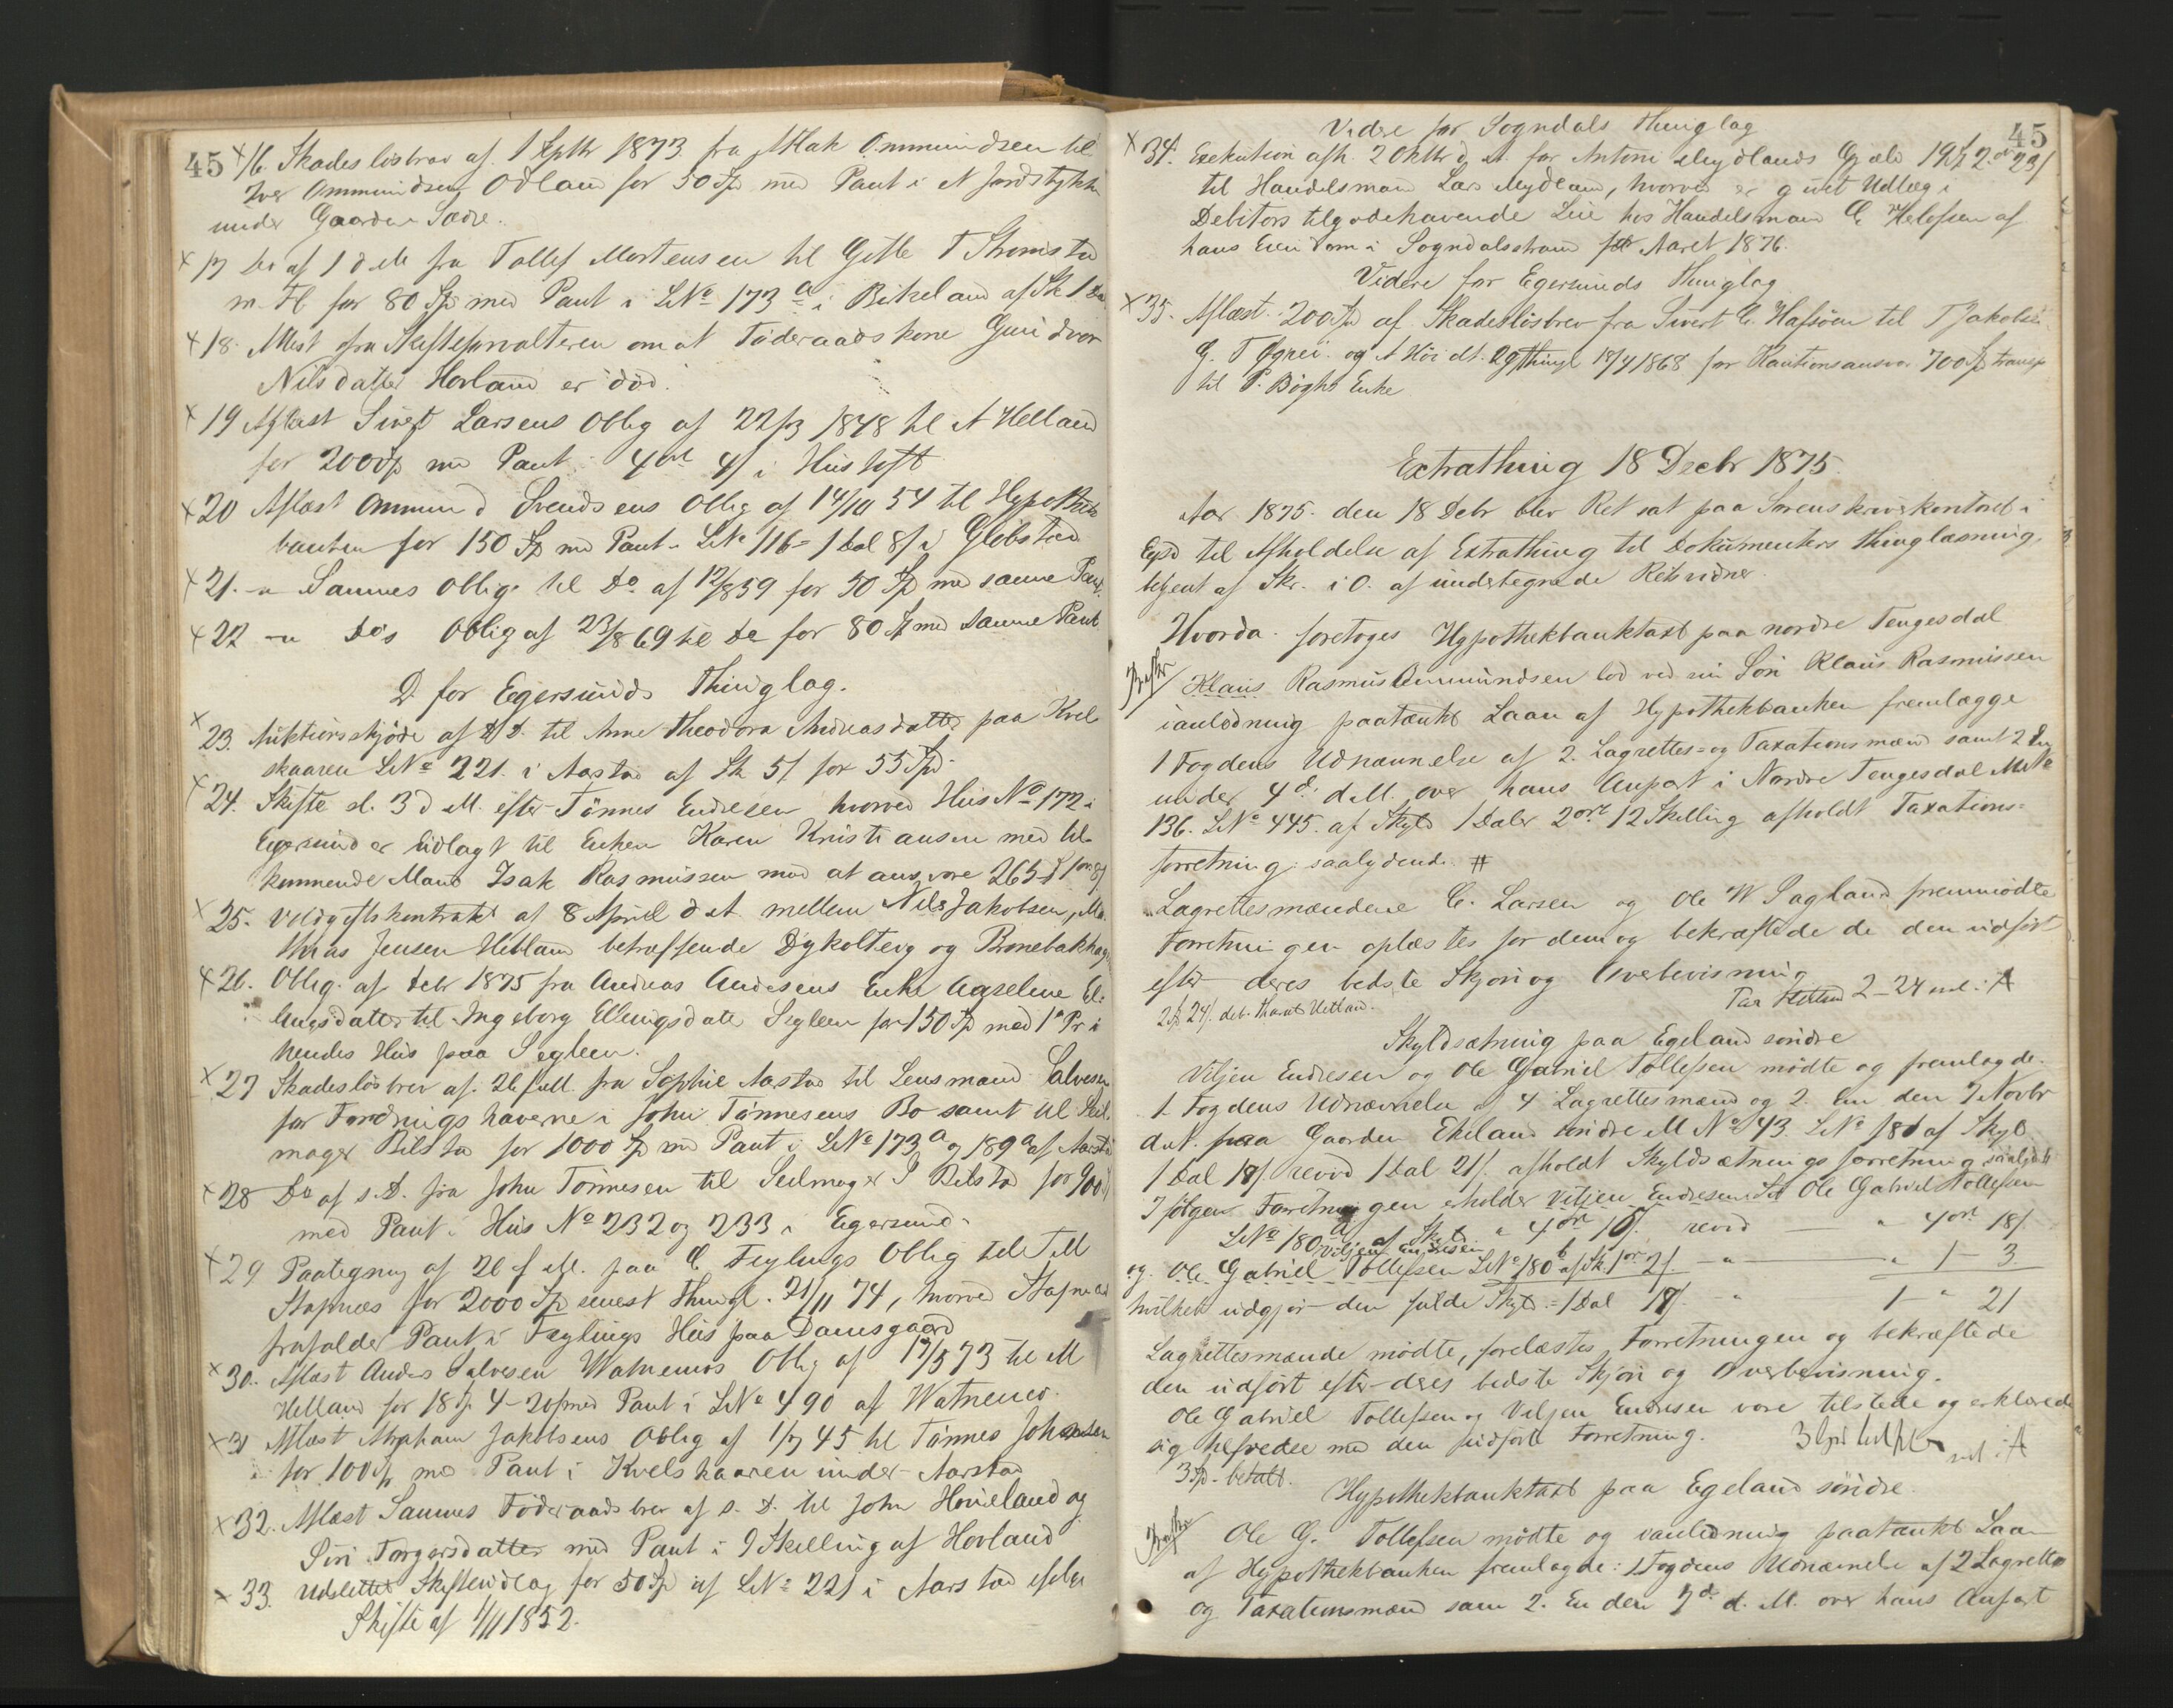 45
16. Skadeslösbrev af 1 Septbr 1873 fra Ommundsen til
Iver Ommundsen Odland for 50 Spd med Pant i et Jordstykke
under Gaarden Sædre.
17 Do af 1 d M. fra Tollef Mortensen til Gitle T
m. Fl for 80 Spd med Pant i LNo 173 a i Birkeland af Sk 1 Da
18. Attest fra Skifteforvalteren om at Föderaadskone Guri
Nilsdatter Hovland er död.
19 Aflæst Sivert Larsens Oblig af 22/3 1848 til A Helland
for 200 Spd med Pant i 4 ort 4 i Hustoft
20 Aflæst Ommund Svendsens Oblig af 14/10 54 til Hypothek
banken for 150 Spd med Pant i LNo 116 = 1 Dal 8 i
21. - Sammes Oblig. til Do af 12/8 59 for 50 Spd med samme Pant.
22 - Do's Oblig af 23/8 69 til Do for 80 Spd med samme Pant
D. for Egersunds Thinglag.
23. Auktionsskjöde af D.D. til Anne Theodora Andreasdatter paa Kvel
skaaren LNo 221. i Aarstad af Sk 5 for 55 Spd.
24. Skifte sl. 3 d M. efter Tönnes Endresen hvorved Huus No 172 i
Egersund er udlagt til Enken Karen Kristiansen med til-
kommende Mand Isak Rasmussen mod at ansvare 265
25. Veldgiftskontrakt af 8 April d A. mellem Nils Jakobsen,
Thias Jensen Hetland betræffende Dykolteig og
26. Oblig. af Debr 1875 fra Andreas Andersens Enke Aaseline El-
lingsdatter til Ingeborg Ellingsdatter Segleem for 150 Spd med 1ste Pr i
hendes Hus paa Segleem.
27 Skadeslösbrev af 26 f M. fra Sophie Aarstad til Lensmand Salvesen
for Fordringshaverne i John Tönnesens Bo samt til Seil-
mager Bilstad for 1000 Spd med Pant i LNo 173 a og 189 a af Aarstad
28 Do af s. D. fra John Tönnesen til Seilmager J Bilstad for 900
med Pant i Hus No 232 og 233 i Egersund.
29 Paategning af 26 f M. paa C. Feylings Oblig til T M
Stapnæs for 2000 Spd senest thingl. 21/11 74, hvorved Stapnæs
frafalder Pant i Feylings Hus paa Damsgaard
30. Aflæst Anders Salvesen Watnemos Oblig af 19/5 73 til M
Helland for 18 Spd 4 - 20 med Pant i LNo 490 af Watnemo.
31 Aflæst Abraham Jakobsens Oblig af 1/7 45 til Tönnes Johannesen
for 100 Spd med Pant i Kvelskaaren under Aarstad
32. Aflæst Sammes Föderaadsbrev af s. D. til John Hovland og
Siri Torgersdatter med Pant i 9 Skilling af Hovland
33. Udslettet Skifteudlæg for 50 Spd af LNo 221 i Aarstad efter
Skifte af 1/11 1852.
45
Videre for Sogndals Thinglag
34. Exekution afh. 2 Oktbr d A. for Antoni Mydlands Gjæld 19 Spd 2 ort 23
til Handelsmand Lars Mydland, hvorved er givet Udlæg i
Debitors tilgodehavende Leie hos Handelsmand C af
hans Eiendom i Sogndalsstrand for Aaret 1876.
Videre for Egersunds Thinglag
35. Aflæst 200 Spd af Skadeslösbrev fra Sivert C. Hafsöen til T Jakobsen
G. T Ögrei og A Höi dt. 29 thingl 18/4 1868 for Kautionsansvar 700 Spd transp
til P. Böghs Enke
Extrathing 18 Decbr 1875.
Aar 1875. den 18 Debr blev Ret sat paa Sorenskriverkontoret i
Egsd til Afholdelse af Extrathing til Dokumenters Thinglæsning,
betjent af Skr. i O. af undertegnede Retsvidner.
Hvorda. foretoges Hypothekbanktaxt paa nordre Tengesdal
Klaus Rasmus Ommundsen lod ved sin Sön Klaus Rasmussen
i anledning paatænkt Laan af Hypothekbanken fremlægge
1 Fogdens Udnævnelse af 2. Lagrettes- og Taxationsmænd samt 2 En
under 4de d M. over hans Anpart i Nordre Tengesdal MNo
136. LNo 445. af Skyld 1 Daler 2 ort 12 Skilling afholdt Taxations=
forretning saalydende #
Lagrettesmændene C. Larsen og Ole W Sagland fremmödte
Forretningen oplæstes for dem og bekræftede de den udfört
efter deres bedste Skjön og Overbevisning
2 24 deb. Hetland. Tax 2 - 24
Skyldsætning paa Egeland söndre
Viljen Endresen og Ole Gabriel Tollefsen mödte og fremlagde.
1. Fogdens Udnævnelse af 4 Lagrettesmænd og 2. En den 7 Novbr
d A. paa Gaarden Ekeland söndre M No 43. LNo 180 af Skyld
1 Dal 18 revid 1 Dal 21 afholdt Skyldsætningsforretning saalyd
Ifölge Forretningen erholder Viljen Endresen Ole Gabriel Tollefsen
LNo 180 a af Skyld 4 ort 16 revid 4 ort 18
Viljen Endresen
og Ole Gabriel Tollefsen LNo 180 b af Sk. 1 ort 2 - 1 - 3.
hvilket udgjör den fulde Skyld = 1 Dal 18 1 - 21
Lagrettesmænde mödte, forelæstes Forretningen og bekræftede
den udfört efter deres bedste Skjön og Overbevisning.
Ole Gabriel Tollefsen og Viljen Endresen vare tilstede og erklærede
sig tilfredse med den udförte Forretning.
3 Spd. betalt.
Hypothekbanktaxt paa Egeland söndre.
Ole G. Tollefsen mödte og i anledning paatænkt Laan
af Hypothekbanken fremlagde: 1 Fogdens Udnævnelse af 2 Lagrettes
og Taxationsmænd sam 2. En den 7de d. M. over hans Anpart